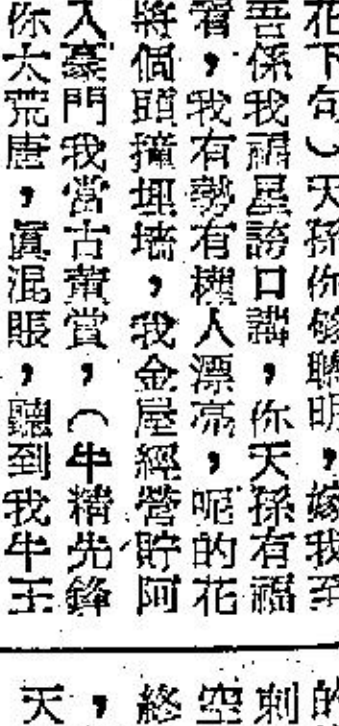 花下句）天孫你够聰明，嫁我至
吾係我福星誇口講，你天孫有福
着，我有勢有權人漂亮，呢的花
將個頭撞埋墻，我金屋經營貯阿
入豪門我當古董賞，（牛精先鋒
你大荒唐，眞混賬，聽到我牛王
的
刺
空
終
，
天